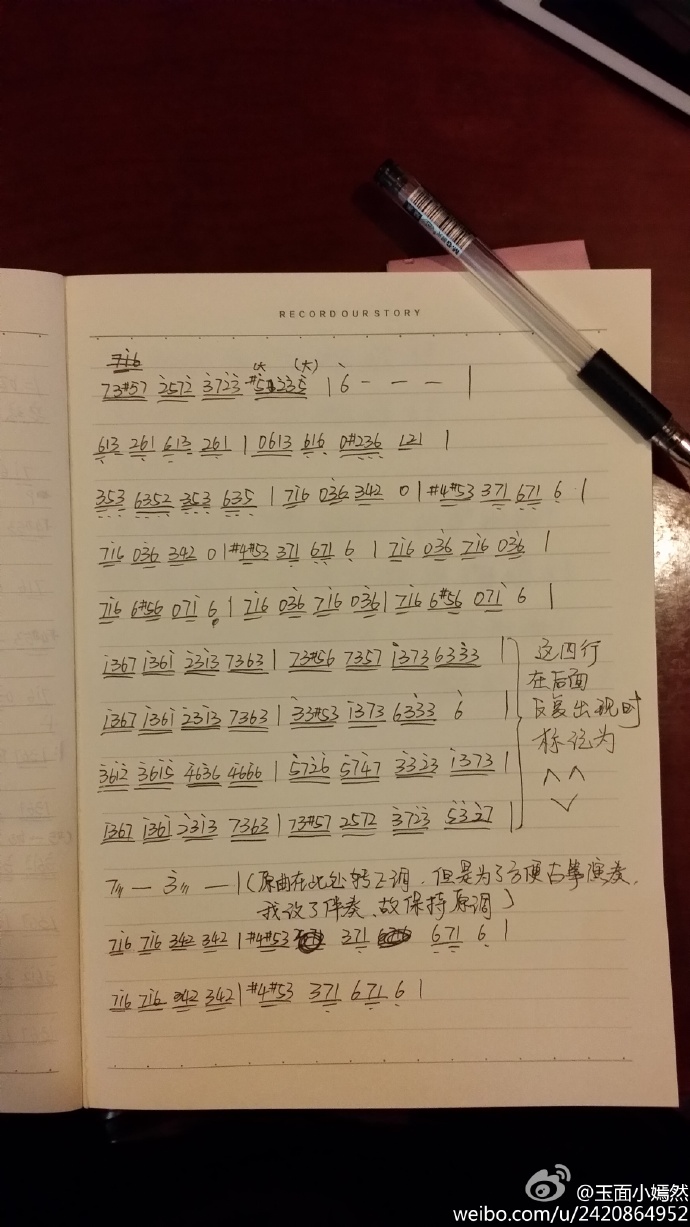 RECORD OUR STORY
716
73#57 2572 3723 #5 235 (大) | 6 - - - |
613 261 613 261 | 0613 616 0#236 121 |
353 6352 353 635 | 716 036 342 0 | #4#53 371 671 6 |
716 036 342 0 | #4#53 371 671 6 | 716 036 716 036 |
716 6#56 071 6 | 716 036 716 036 | 716 6#56 071 6 |
1367 1361 2313 7363 | 73#56 7357 1373 6333 |
1367 1361 2313 7363 | 33#53 1373 6333 6 |
3612 3615 4636 4666 | 5726 5747 3323 1373 |
1367 1361 2313 7363 | 73#57 2572 3723 5327 |
这四行
在后面
反复出现时
标记为
7 — 3 — | (原曲在此处转乙调，但是为了方便古筝演奏，
我设了伴奏、故保持原调)
716 716 342 342 | #4#53 371 671 6 |
716 716 342 342 | #4#53 371 671 6 |
@玉面小嫣然
weibo.com/u/2420864952